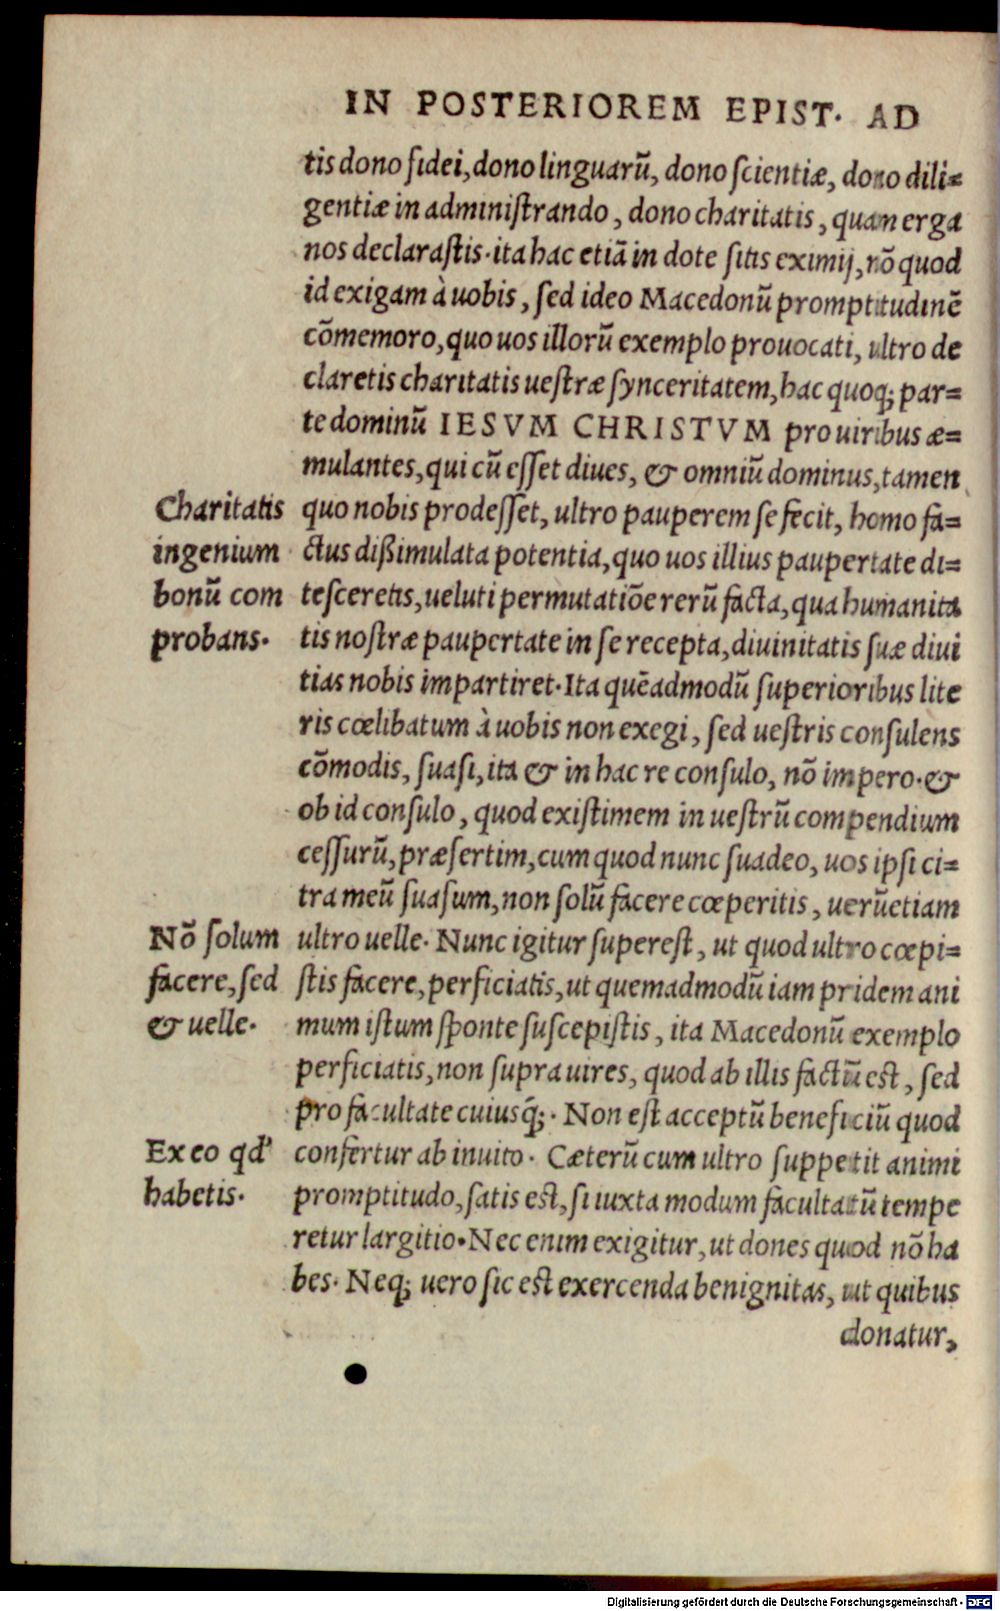 IN POSTERIOREM EPIST. AD
tis dono fidei, dono linguarũ, dono scientiæ, dono dili=
gentiæ in administrando, dono charitatis, quam erga
nos declarastis. ita hac etiã in dote sitis eximij, nõ quod
id exigam à uobis, sed ideo Macedonũ promptitudinẽ
cõmemoro, quo uos illorũ exemplo prouocati, ultro de
claretis charitatis uestræ synceritatem, hac quoq; par=
te dominũ IESVM CHRISTVM pro uiribus æ=
mulantes, qui cũ esset diues, & omniũ dominus, tamen
Charitatis quo nobis prodesset, ultro pauperem se fecit, homo fa=
ingenium ctus dißimulata potentia, quo uos illius paupertate di=
bonũ com tesceretis, ueluti permutatiõe rerũ facta, qua humanita
probans. tis nostræ paupertate in se recepta, diuinitatis suæ diui
tias nobis impartiret. Ita quẽadmodũ superioribus lite
ris cœlibatum à uobis non exegi, sed uestris consulens
cõmodis, suasi, ita & in hac re consulo, nõ impero. &
ob id consulo, quod existimem in uestrũ compendium
cessurũ, præsertim, cum quod nunc suadeo, uos ipsi ci=
tra meũ suasum, non solũ facere cœperitis, uerũetiam
Nõ solum ultro uelle. Nunc igitur superest, ut quod ultro cœpi=
facere, sed stis facere, perficiatis, ut quemadmodũ iam pridem ani
& uelle. mum istum sponte suscepistis, ita Macedonũ exemplo
perficiatis, non supra uires, quod ab illis factũ est, sed
pro facultate cuiusq̃;. Non est acceptũ beneficiũ quod
Ex eo qd' confertur ab inuito. Cæterũ cum ultro suppetit animi
habetis. promptitudo, satis est, si iuxta modum facultatũ tempe
retur largitio. Nec enim exigitur, ut dones quod nõ ha
bes. Neq; uero sic est exercenda benignitas, ut quibus
donatur,
Digitalisierung gefördert durch die Deutsche Forschungsgemeinschaft - DFG